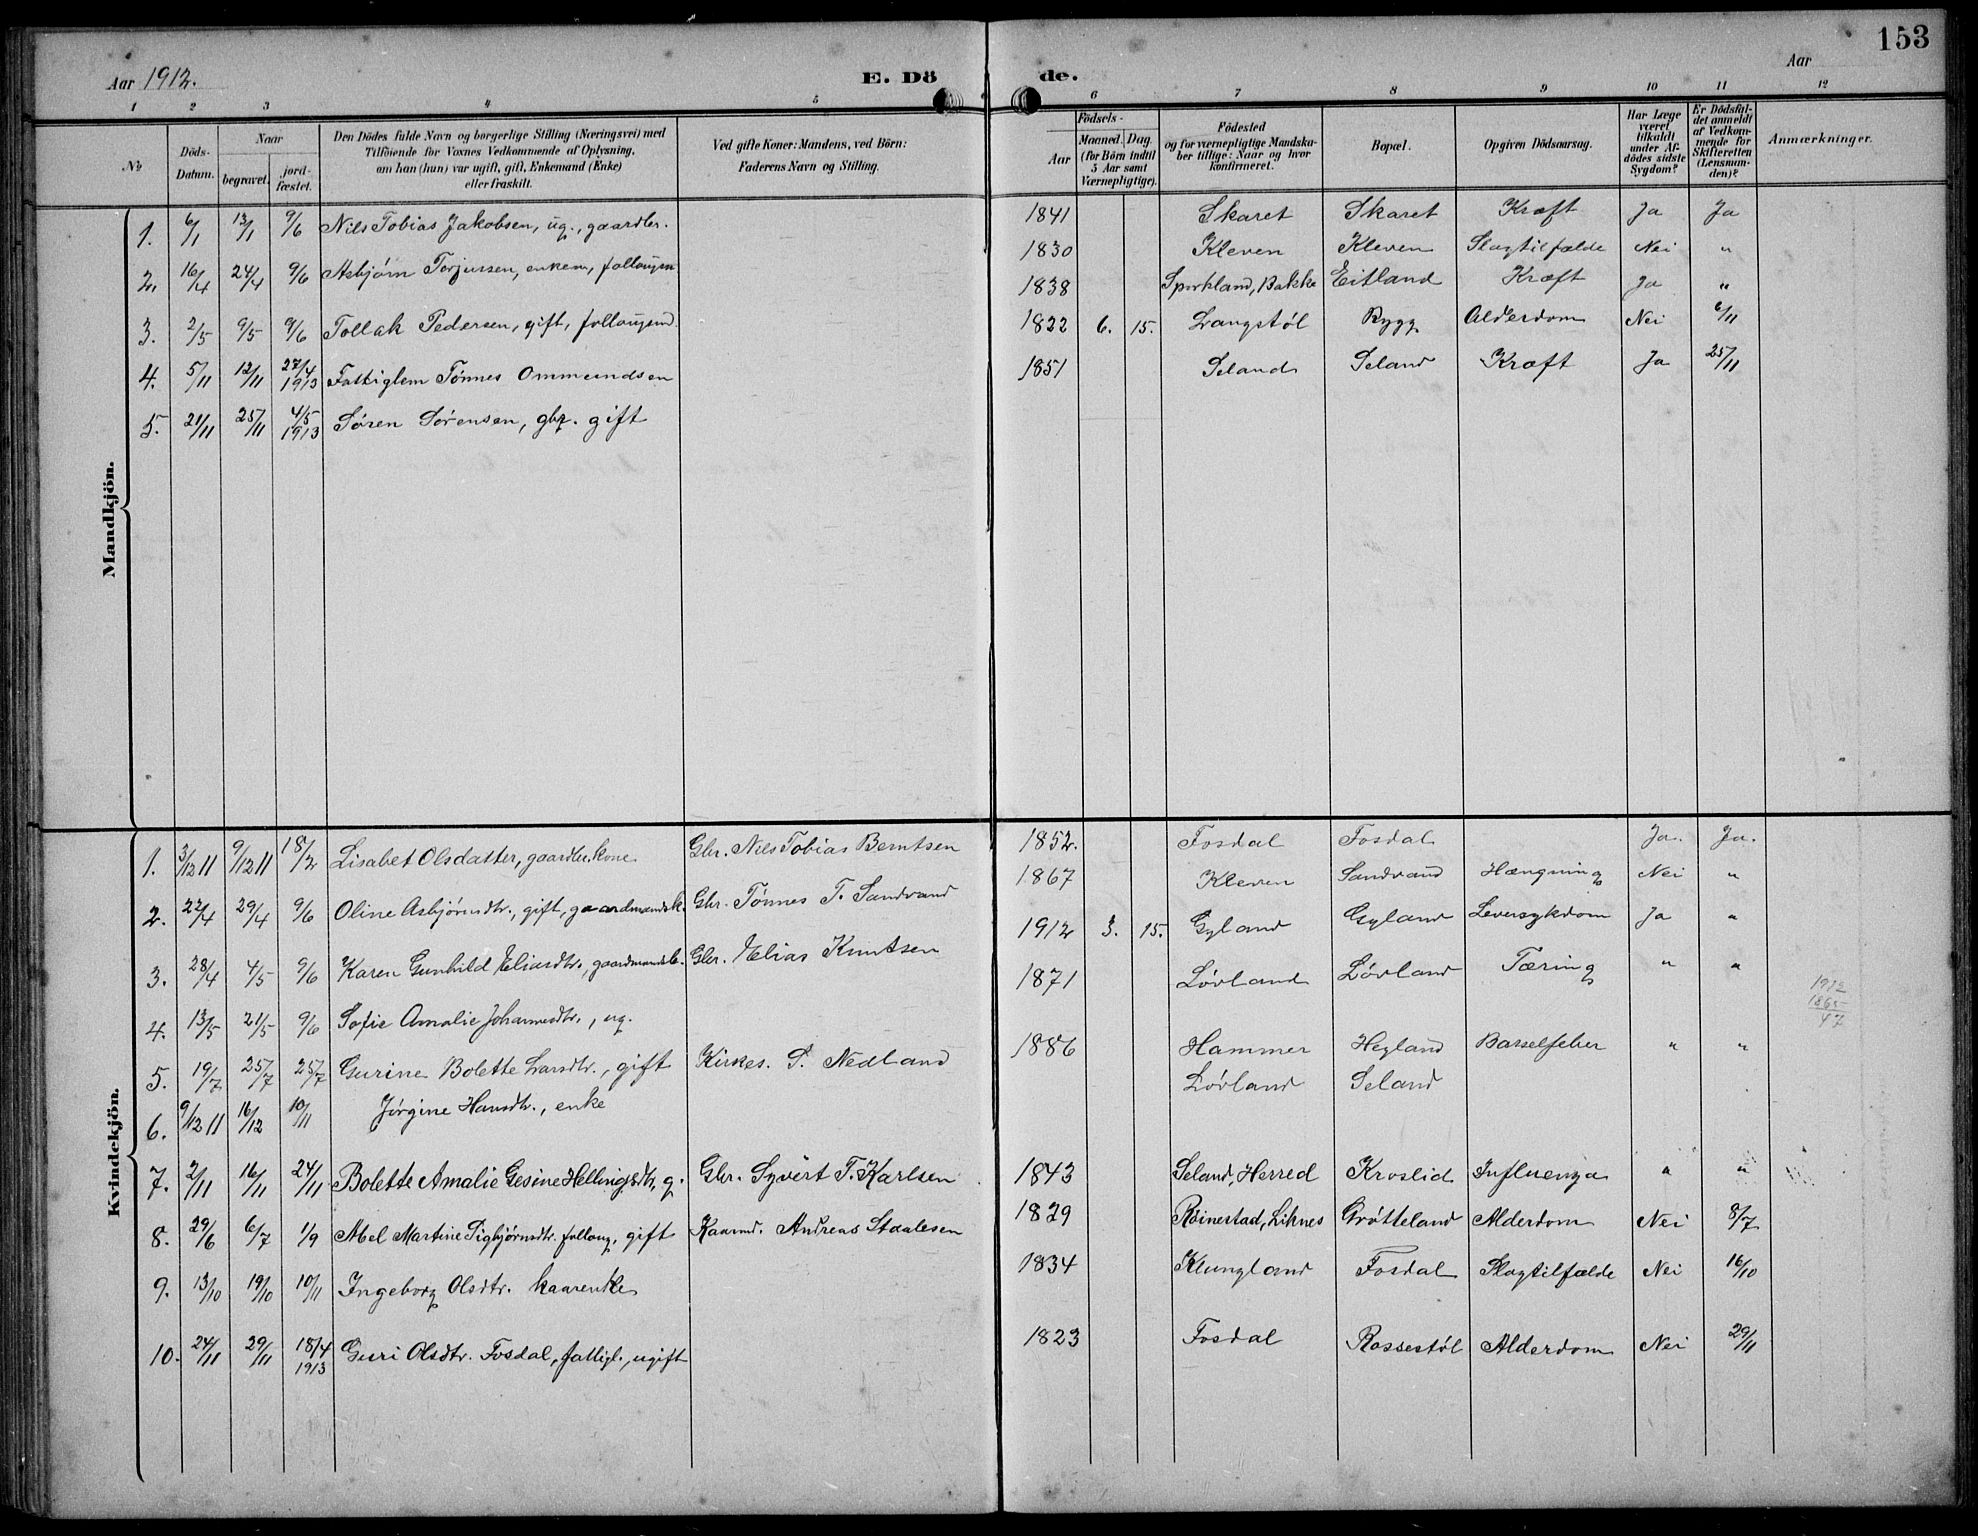 153
Aar 1912.
E. Dö de.
Aar
1 2 3 4 5 6 7 8 9 10 11 12
№
Döds-Datum.
Naar
begravet.
jord-fæstet.
Den Dödes fulde Navn og borgerlige Stilling (Næringsvei) med
Tilföiende for Voxnes Vedkommende af Oplysning,
om han (hun) var ugift, gift, Enkemand (Enke)
eller fraskilt.
Ved gifte Koner: Mandens, ved Börn:
Faderens Navn og Stilling.
Födsels-
Aar
Maaned. Dag.
(for Börn indtil
5 Aar samt
Værnepligtige).
Födested
og for værnepligtige Mandska-
ber tillige: Naar og hvor
konfirmeret.
Bopæl.
Opgiven Dödsaarsag.
Har Læge
været
tilkaldt
under Af-
dödes sidste
Sygdom?
Er Dödsfal-
det anmeldt
af Vedkom-
mende for
Skifteretten
(Lensman-
den)?
Anmærkninger.
Mandkjön.
1. 6/1 13/1 9/6 Nils Tobias Jakobsen, ug., gaardbr. 1841 Skaret Skaret Kræft Ja Ja
2. 16/4 24/4 9/6 Asbjørn Torjussen, enkem, follaugsm 1830 Kleven Kleven Slagtilfælde Nei "
3. 2/5 9/5 9/6 Tollak Pedersen, gift, follaugsmd. 1838 Spirkland, Bakke Eitland Kræft Ja "
4. 5/11 12/11 27/4 1913 Fattiglem Tønnes Ommundsen 1822 6. 15. Langstøl Rygg Alderdom Nei 6/11
5. 21/11 25/11 4/5 1913 Søren Sørensen, gbr. gift 1851 Seland Seland Kræft Ja 25/11
Kvindekjön.
1. 3/12 11 9/12 11 18/2 Lisabet Olsdatter, gaardbr. kone Gbr. Nils Tobias Berntsen 1852. Fosdal Fosdal Ja. Ja.
2. 22/4 29/4 9/6 Oline Asbjørnsdtr., gift, gaardmandsk. Gbr. Tønnes T. Sandvand 1867 Kleven Sandvand Hængning Nei "
3. 28/4 4/5 9/6 Karen Gunhild Eliasdtr., gaardmandsb. Gbr. Elias Knutsen 1912 3. 15. Gyland Gyland Leversykdom Ja "
4. 13/5 21/5 9/6 Sofie Amalie Johannesdtr., ug. 1871 Lövland Lövland Tæring " "
1912
1865
47
5. 19/7 25/7 25/7 Gurine Bolette Larsdtr., gift Kirkes. S. Nedland 1886 Hammer Hegland Barselfeber " "
6. 9/12 11 16/12 10/11 Jørgine Hansdtr., enke Lövland Seland
7. 2/11 16/11 24/11 Bolette Amalie Gesine Hellingsdtr, g. Gbr. Syvert T. Karlsen 1843 Seland, Herred Kroslid Influenza " "
8. 29/6 6/7 1/9 Abel Martine Sigbjørnsdtr. follaug, gift Kaarmd. Andreas Staalesen 1829 Röinestad, Liknes Grötteland Alderdom Nei 8/7
9. 13/10 19/10 10/11 Ingeborg Olsdtr. kaarenke 1834 Klungland Fosdal Slagtilfælde Nei 16/10
10. 24/11 29/11 18/4 1913 Guri Olsdtr. Fosdal, fattigl., ugift 1823 Fosdal Rossestøl Alderdom Nei 29/11